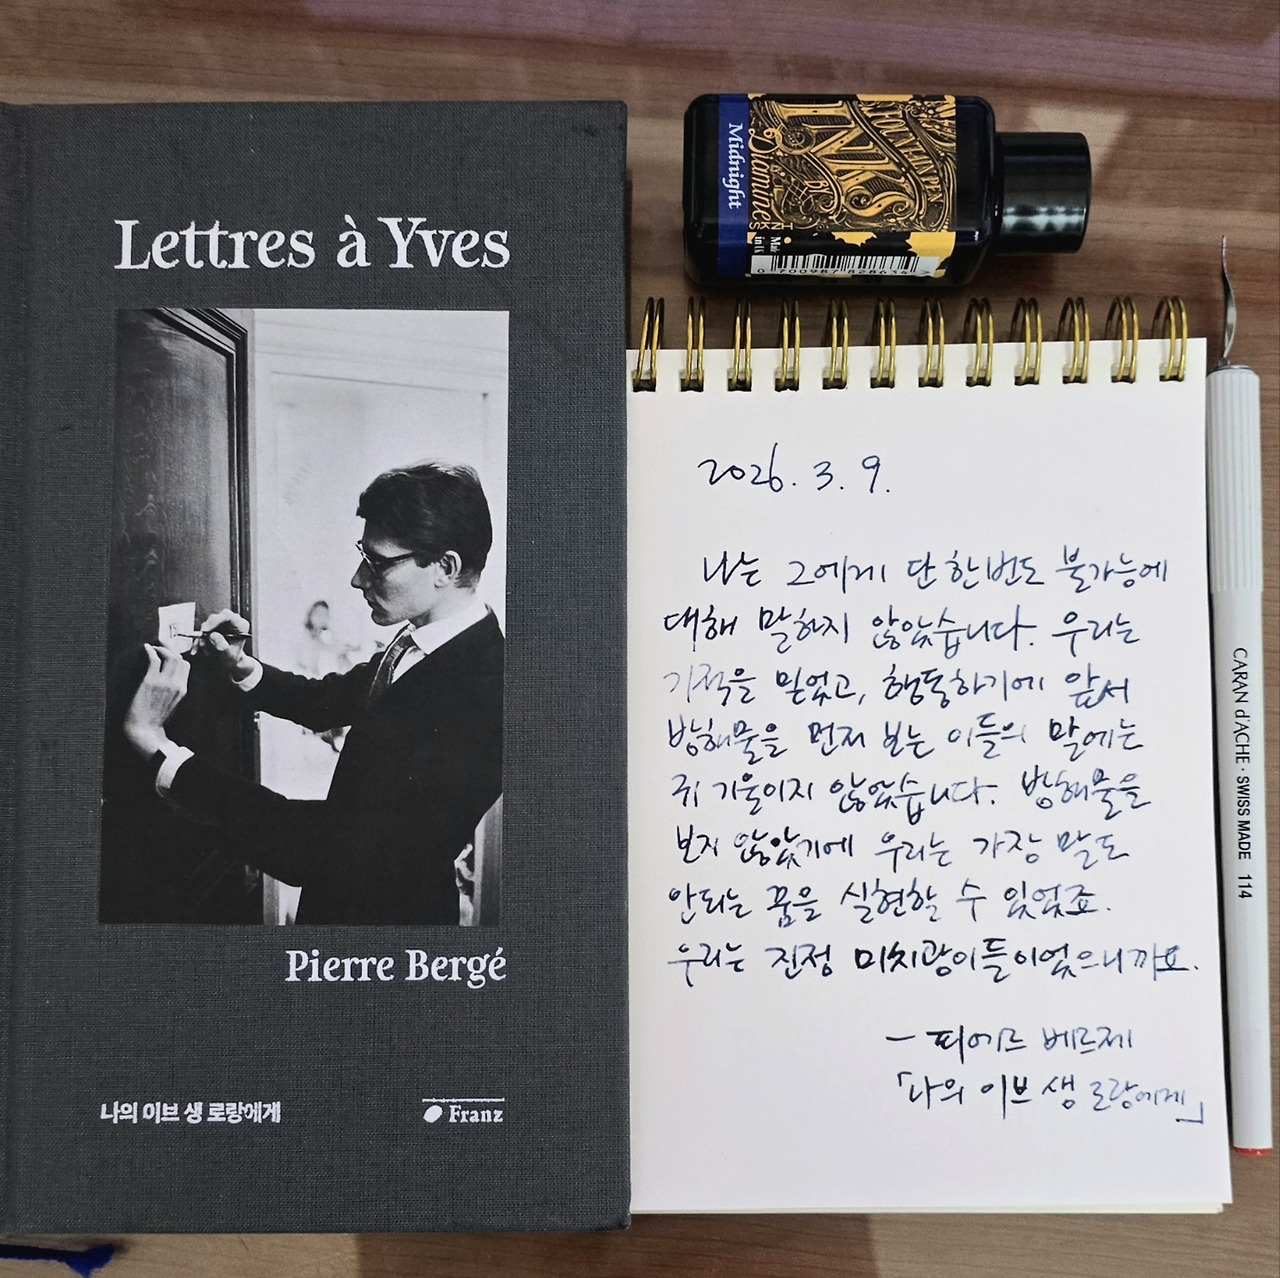 Lettres à Yves
Pierre Bergé
나의 이브 생 로랑에게
Franz
Midnight
FOUNTAIN PEN
INKS
BY
Diamine
INKS
Made
in UK
0 700987 828634
2026. 3. 9.
나는 그에게 단 한번도 불가능에
대해 말하지 않았습니다. 우리는
기적을 믿었고, 행동하기에 앞서
방해물을 먼저 보는 이들의 말에는
귀 기울이지 않았습니다. 방해물을
보지 않았기에 우리는 가장 말도
안되는 꿈을 실현할 수 있었죠.
우리는 진정 미치광이들이었으니까요.
- 피에르 베르제
「나의 이브 생 로랑에게」
CARAN d'ACHE · SWISS MADE 114